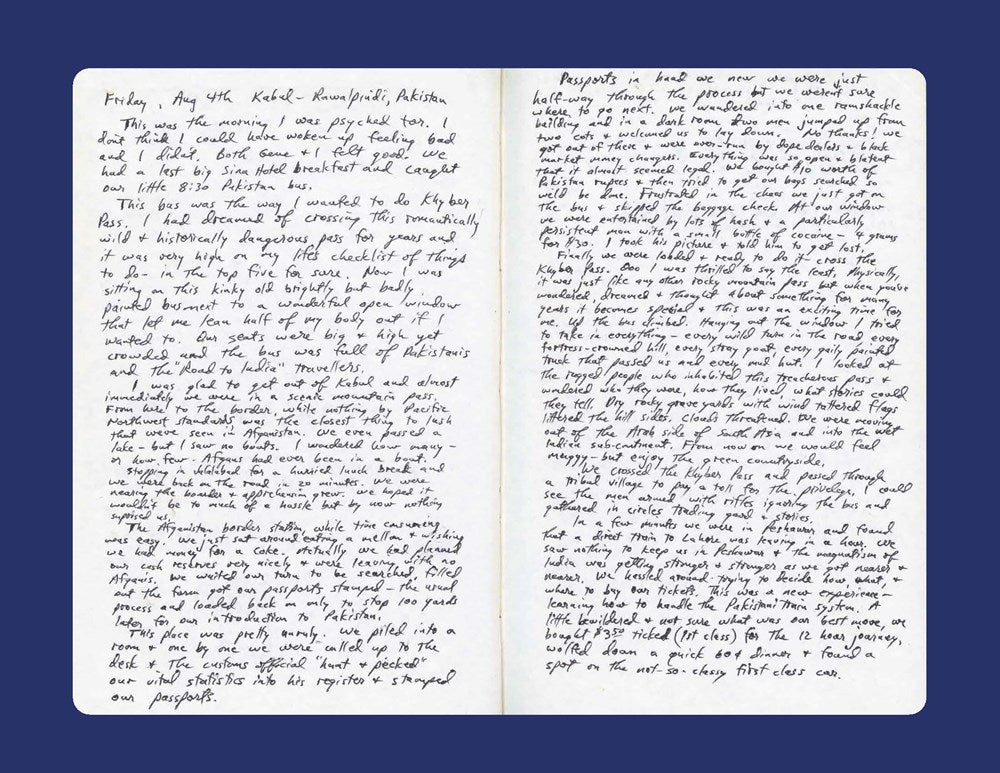 Friday, Aug 4th Kabul - Rawalpindi, Pakistan
This was the morning I was psyched for. I
don't think I could have woken up feeling bad
and I didn't. Both Gene & I felt good. We
had a last big Sina Hotel breakfast and caught
our little 8:30 Pakistan bus.
This bus was the way I wanted to do Khyber
Pass. I had dreamed of crossing this romantically
wild & historically dangerous pass for years and
it was very high on my lifes checklist of things
to do - in the top five for sure. Now I was
sitting on this kinky old brightly but badly
painted bus next to a wonderful open window
that let me lean half of my body out if I
wanted to. Our seats were big & high yet
crowded and the bus was full of Pakistanis
and the "Road to India" travellers.
I was glad to get out of Kabul and almost
immediately we were in a scenic mountain pass.
From here to the border, while nothing by Pacific
Northwest standards was the closest thing to lush
that we've seen in Afganistan. We even passed a
lake - but I saw no boats. I wondered how many -
or how few - Afgans had ever been in a boat.
Stopping in Jalalabad for a hurried lunch break and
we were back on the road in 20 minutes. We were
nearing the boarder & apprehension grew. We hoped it
wouldn't be to much of a hassle but by now nothing
suprised us.
The Afganistan border station, while time consuming
was easy. We just sat around eating a mellon & wishing
we had money for a coke. Actually we had planned
our cash reserves very nicely & were leaving with no
Afganis. We waited our turn to be searched, filled
out the form got our passports stamped - the usual
process and loaded back on only to stop 100 yards
later for our introduction to Pakistan.
This place was pretty unruly. We piled into a
room & one by one we were called up to the
desk & the customs official "hunt & pecked"
our vital statistics into his register & stamped
our passports.
Passports in hand we new we were just
half-way through the process but we weren't sure
where to go next. We wandered into one ramshackle
building and in a dark room two men jumped up from
two cots & welcomed us to lay down. No thanks! We
got out of there & were over-run by dope dealers & black
market money changers. Everything was so open & blatent
that it almost seemed legal. We bought $10 worth of
Pakistan rupees & then tried to get our bags searched so
we'd be done. Frustrated in the chaos we just got on
the bus & skipped the baggage check. At our window
we were entertained by lots of hash & a particularly
persistent man with a small bottle of cocaine - 4 grams
for $30. I took his picture & told him to get lost.
Finally we were loaded & ready to do it - cross the
Khyber Pass. Ooo I was thrilled to say the least. Physically,
it was just like any other rocky mountain pass but when you've
wondered, dreamed & thought about something for many
years it becomes special & this was an exciting time for
me. Up the bus climbed. Hanging out the window I tried
to take in everything - every wild turn in the road, every
fortress-crowned hill, every stray goat, every gaily painted
truck that passed us and every mud hut. I looked at
the rugged people who inhabited this treacherous pass &
wondered who they were, how they lived, what stories could
they tell. Dry rocky grave yards with wind tattered flags
littered the hill sides, clouds threatened. We were moving
out of the Arab side of South Asia and into the wet
Indian sub-continent. From now on we would feel
muggy - but enjoy the green countryside.
We crossed the Khyber Pass and passed through
a tribal village to pay a toll for the privelege, I could
see the men armed with rifles ignoring the bus and
gathered in circles trading good & stories.
In a few minutes we were in Peshawar and found
that a direct train to Lahore was leaving in a hour. We
saw nothing to keep us in Peshawar & the magnatism of
India was getting stronger & stronger as we got nearer &
nearer. We hassled around trying to decide how, what, &
where to buy our tickets. This was a new experience -
learning how to handle the Pakistani train system. A
little bewildered & not sure what was our best move, we
bought $3.50 ticked (1st class) for the 12 hour journey,
wolfed down a quick 60¢ dinner & found a
spot on the not-so-classy first class car.